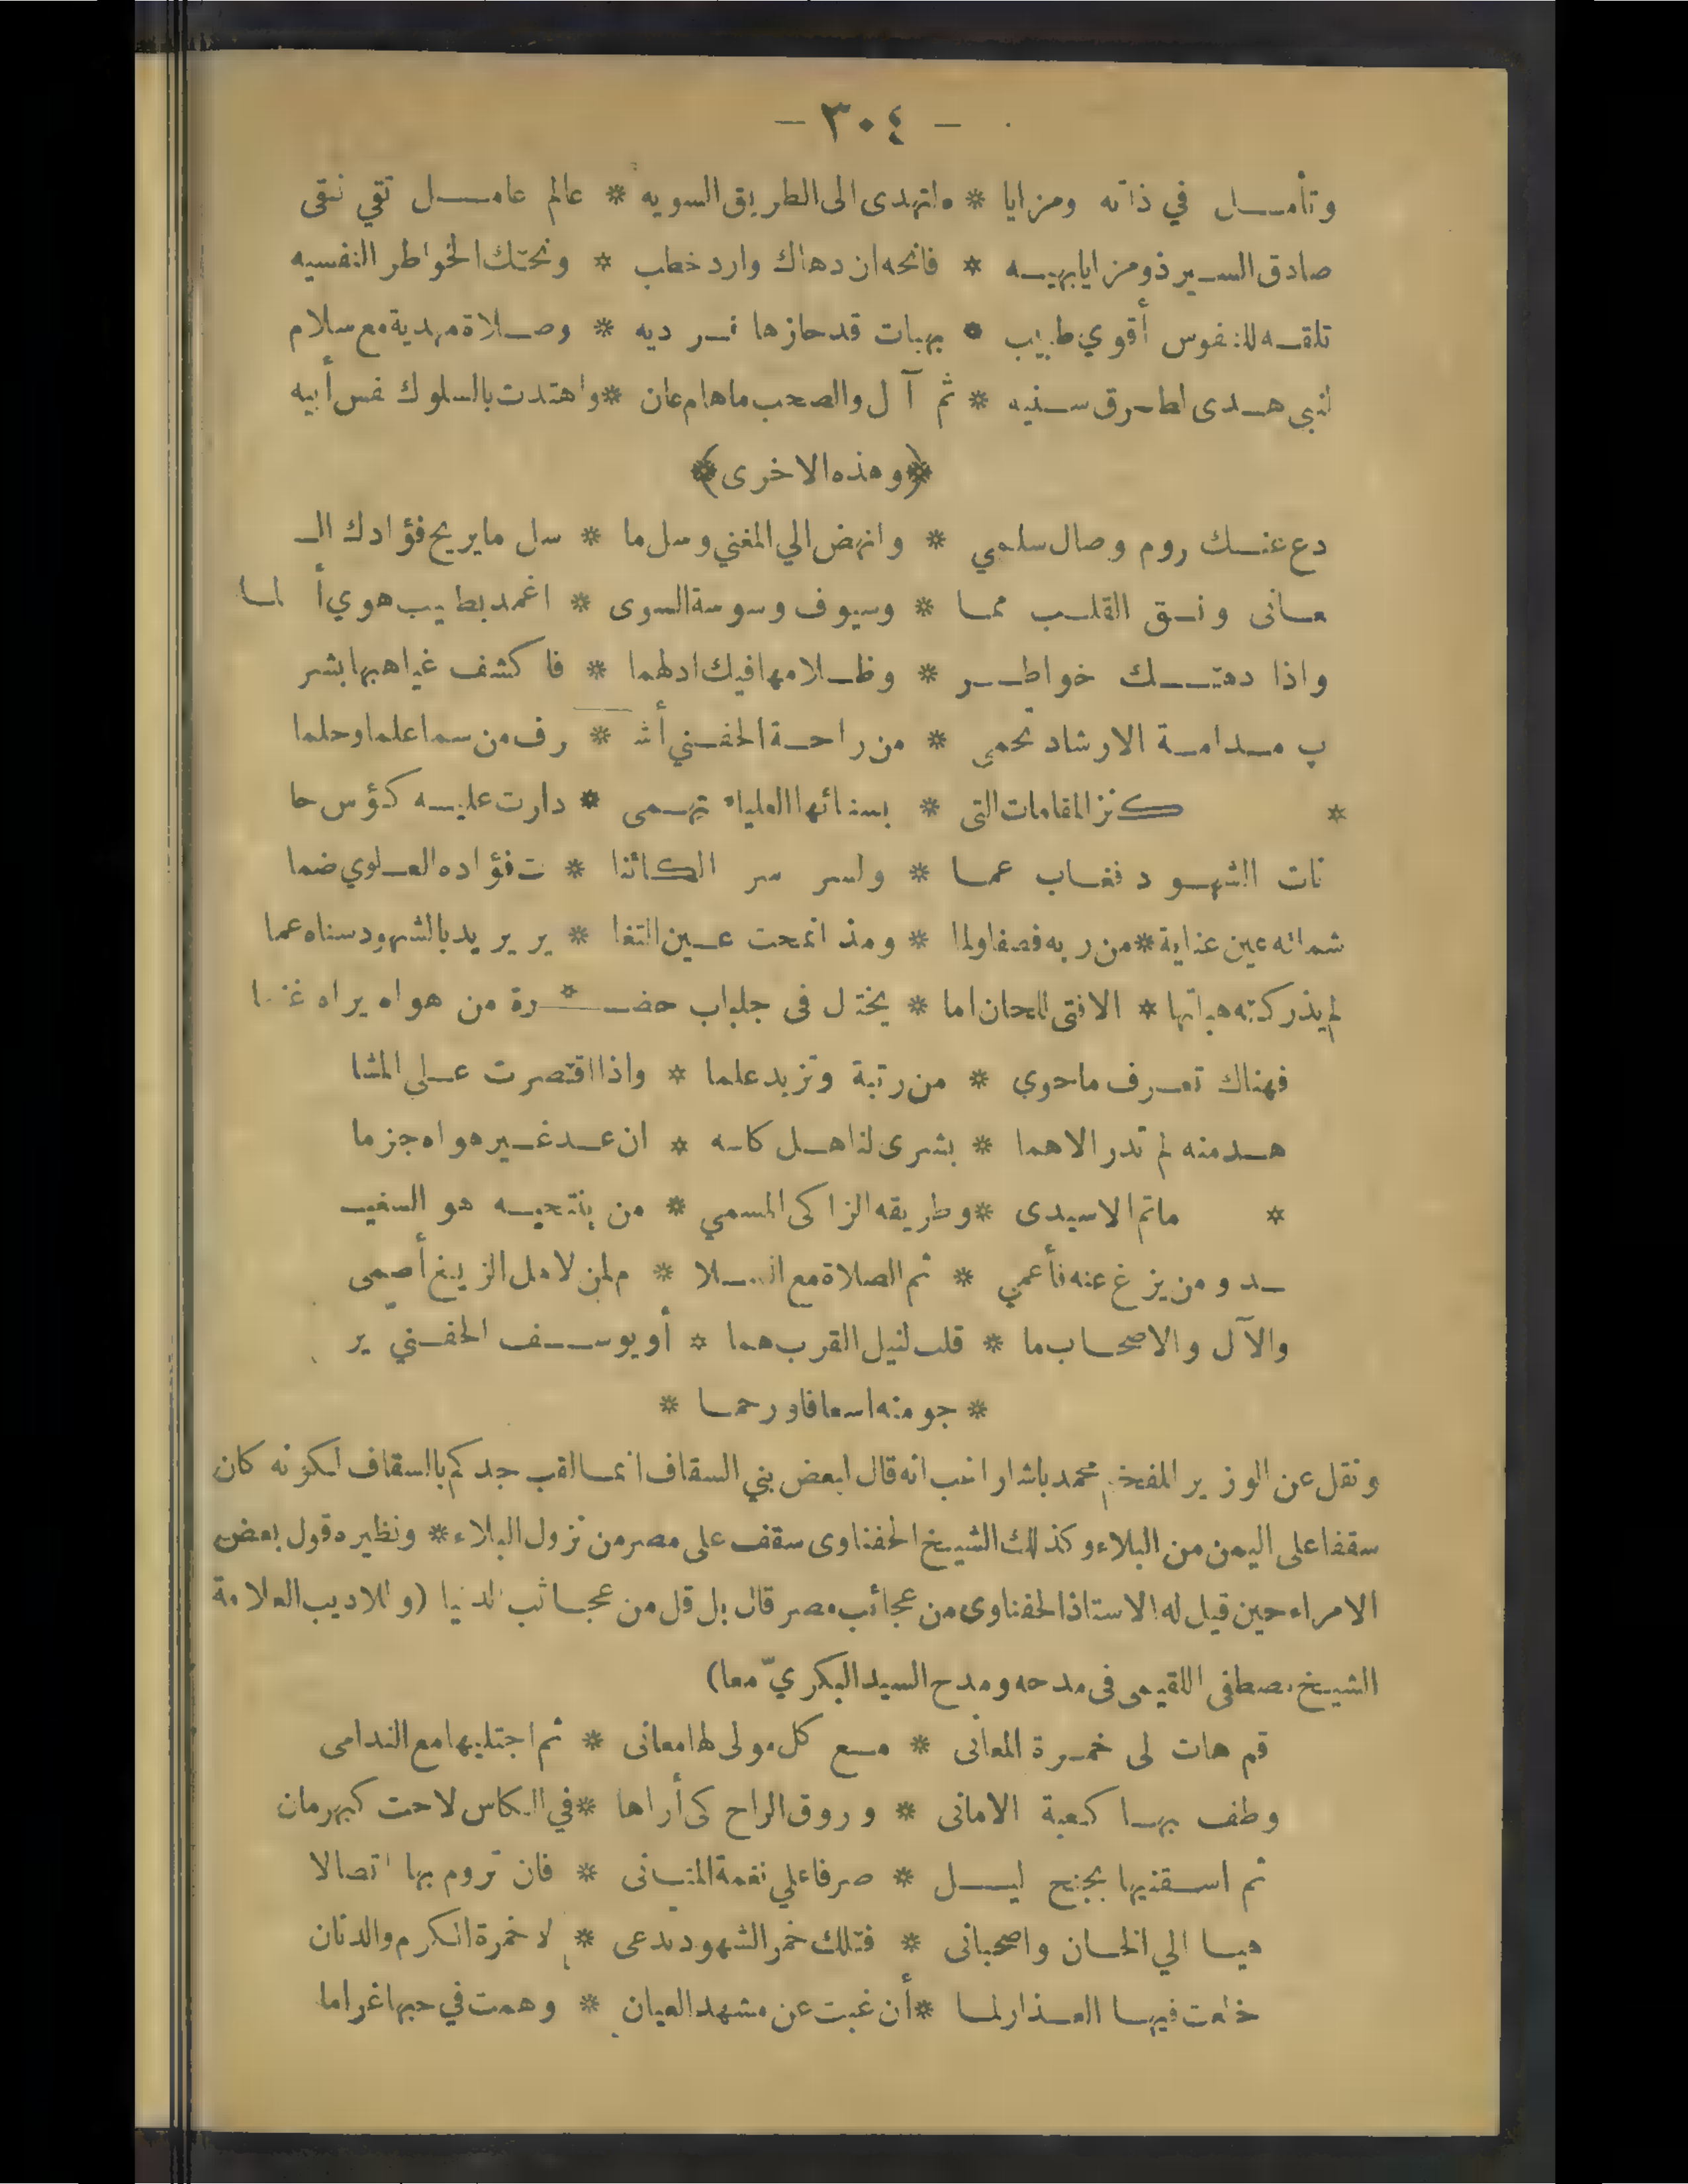 - ٣٠٤ -
وتأمل في ذاته ومزايا * ه اتهدى الى الطريق السويه * عالم عامل تقي نقى
صادق السير ذو مزايا بهيه * فانحه ان دهاك وارد خطب * ونحتك الخواطر النفسيه
تلقه للنفوس أقوي طبيب * بهبات قد حازها نر ديه * وصلاة مهدية مع سلام
لنبي هدى لطرق سنيه * ثم آل والصحب ما هام عان * واهتدت بالسلوك نفس أبيه
﴿وهذه الاخرى﴾
دع عنك روم وصال سلمي * وانهض الي المغني وسل ما * سل ما يريح فؤادك الـ
عانى ونق القلب مما * وسيوف وسوسة السوى * اغمد بطيب هوي أ لما
واذا دهتك خواطر * وظلامها فيك ادلهما * فاكشف غياهبها بشر
ب مدامة الارشاد تحمى * من راحة الحفني أشـ * رف من سما علما وحلما
* كنز المقامات التى * بسنائها العلياء تهمى * دارت عليه كؤس حا
نات الشهود فغاب عما * ولسر سر الكائنا * ت فؤاده العلوي ضما
شملته عين عناية * من ربه فصفا ولما * ومذ انمحت عين التغا * ير يريد بالشهود سناه عما
لم يذر كنه هباتها * الا فتى للحان اما * يختل فى جلباب حضـ * رة من هواه يراه
فهناك تعرف ما حوي * من رتبة وتزيد علما * واذا اقتصرت على المشا
هد منه لم تدر الاهما * بشرى لنا هل كاسه * ان عد غير هواه جزما
* ماتم الا سيدى * وطريقه الزاكى المسمي * من ينتحيه هو السعيـ
ـد ومن يزغ عنه فأعمي * ثم الصلاة مع السلا * م لمن لاهل الزيغ أصمى
والآل والاصحاب ما * قلب لنيل القرب هما * أو يوسف الحفني ير
* جو منه اسعافا ورحما *
ونقل عن الوزير المفخم محمد باشا راغب انه قال لبعض بني السقاف انما لقب جدكم بالسقاف لكونه كان
سقفا على اليمن من البلاء وكذلك الشيخ الحفناوى سقف على مصر من نزول البلاء * ونظيره قول بعض
الامراء حين قيل له الاستاذ الحفناوى من عجائب مصر قال بل قل من عجائب الدنيا (وللاديب العلامة
الشيخ مصطفى اللقيمى فى مدحه ومدح السيد البكريّ معا)
قم هات لى خمرة المعانى * مع كل مولى لها معانى * ثم اجتليها مع الندامى
وطف بها كعبة الامانى * وروق الراح كى أراها * في الكاس لاحت كبهرمان
ثم اسقنيها بجنح ليل * صرفا علي نغمة المثانى * فان تروم بها اتصالا
هيا الي الحان واصحبانى * فتلك خمر الشهود تدعى * لا خمرة الكرم والدنان
خلعت فيها العذار لما * أن غبت عن مشهد العيان * وهمت في حبها غراما